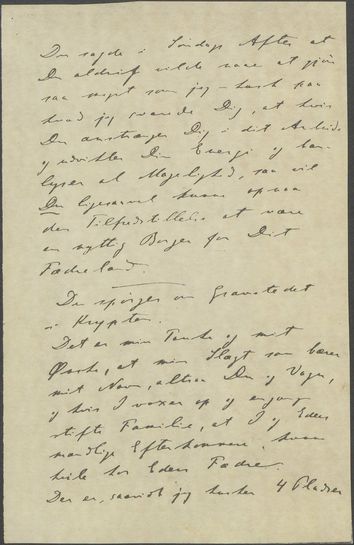 Du sagde i Søndags Aften at
Du aldrig vilde naae at gjøre
saa meget som jeg – husk paa
hvad jeg svarede Dig, at hvis
Du anstrænger Dig i dit Arbeide
og udvikler Din Energi og ban-
lyser al Magelighed, saa vil
Du ligesaavel kunne opnaa
den Tilfredstillelse at være
en nyttig Borger for Dit
Fædreland.
Du spørger om Gravstedet
i Krypten.
Det er min Tanke og mit
Ønske, at min Slægt som bærer
mit Navn, altsaa Du og Vagn,
og hvis I voxer op og engang
stifte Familie, at I og Eders
mandlige Efterkommere kunne
hvile hos Eders Fædre.
Der er, saavidt jeg husker 4 Pladser